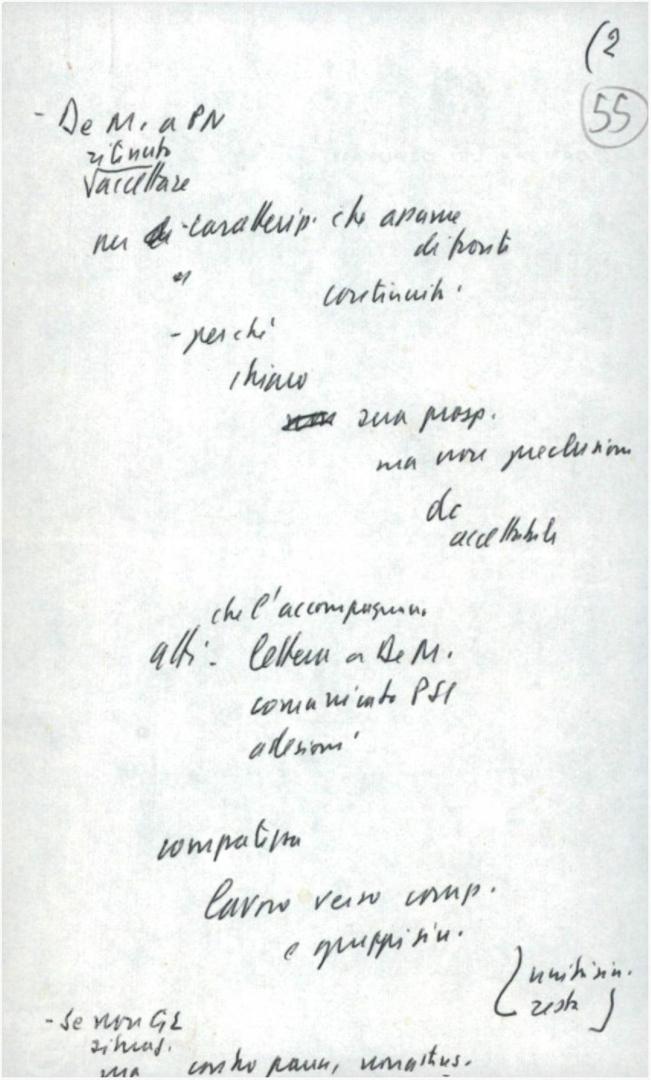 (2
55
- De M. a PN
ritenuto
accettare
per caratterip. che apparve
di fronte
continuità.
- perché
chiaro
sua prosp.
ma non preclusione
da
accettabile
che l'accompagnano
atti: lettera a De M.
comunicato PSI
adesioni
compattezza
lavoro verso comp.
e gruppi sin.
unità sin.
resta
- Se non GL
rimas.
ma contro